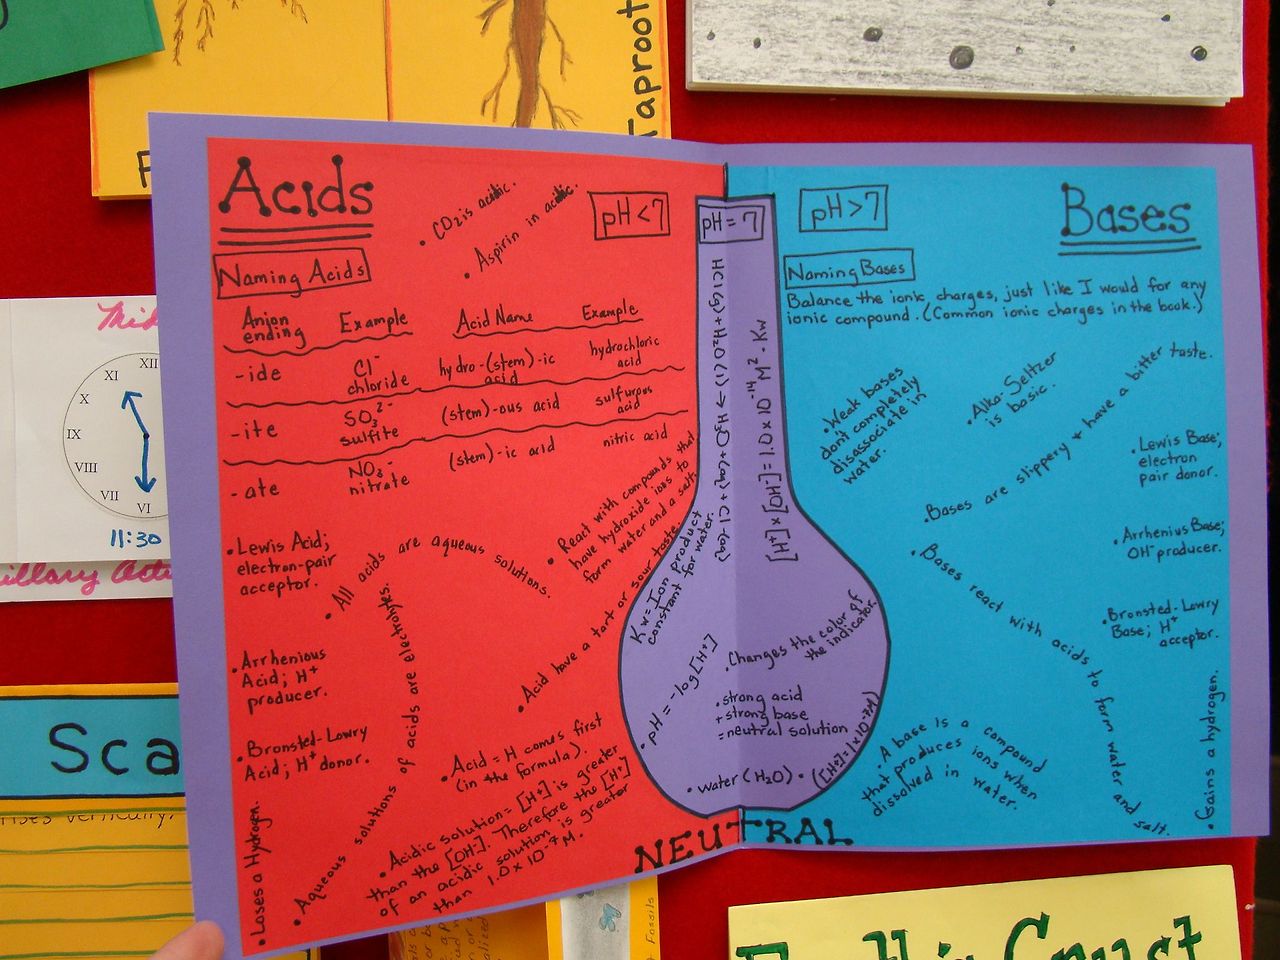 Taproot
Acids
• CO2 is acidic.
• Aspirin in acidic.
pH < 7
Naming Acids
Anion ending Example Acid Name Example
-ide Cl⁻ chloride hydro-(stem)-ic acid hydrochloric acid
-ite SO₃²⁻ sulfite (stem)-ous acid sulfurous acid
-ate NO₃⁻ nitrate (stem)-ic acid nitric acid
• Lewis Acid;
electron-pair
acceptor.
• All acids are aqueous solutions.
• React with compounds that
have hydroxide ions to
form water and a salt.
• Acid have a tart or sour taste.
• Arrhenious
Acid; H⁺
producer.
• Bronsted-Lowry
Acid; H⁺ donor.
• Aqueous solutions of acids are electrolytes.
• Acid = H comes first
(in the formula).
• Acidic solution = [H⁺] is greater
than the [OH⁻]. Therefore the [H⁺]
of an acidic solution is greater
than 1.0 x 10⁻⁷ M.
• Loses a Hydrogen.
pH = 7
HCl(g) + H2O(l) → H3O + (aq) + Cl⁻(aq)
[H⁺] x [OH⁻] = 1.0 x 10⁻¹⁴ M² · Kw
Kw = Ion product
constant for water.
• pH = -log[H⁺]
• Changes the color of
the indicator.
• strong acid
+ strong base
= neutral solution
• water (H2O) • ([H⁺] = 1x10⁻⁷M)
NEUTRAL
pH > 7
Bases
Naming Bases
Balance the ionic charges, just like I would for any
ionic compound. (Common ionic charges in the book.)
• Weak bases
don't completely
disassociate in
water.
• Alka-Seltzer
is basic.
• Bases are slippery + have a bitter taste.
• Lewis Base;
electron
pair donor.
• Arrhenius Base;
OH⁻ producer.
• Bronsted-Lowry
Base; H⁺
acceptor.
• Bases react with acids to form water and salt.
• A base is a compound
that produces ions when
dissolved in water.
• Gains a hydrogen.
XII
XI
X
IX
VIII
VII
VI
11:30
Sca
rises vertically.
Fossils
Crust